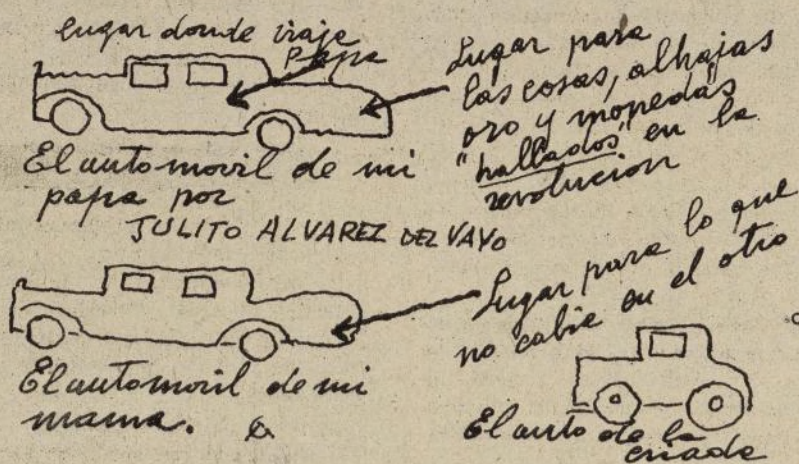 lugar donde viaje
papa
Lugar para
las cosas, alhajas
oro y monedas
"hallados" en la
revolucion
El automovil de mi
papa por
JULITO ALVAREZ DEL VAYO
Lugar para lo que
no cabie en el otro
El automovil de mi
mama.
El auto de la
criada